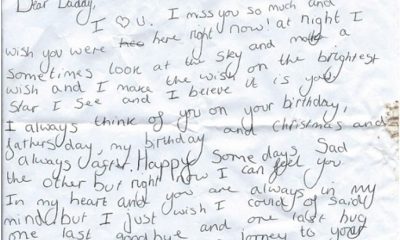 Dear Daddy,
I ♡ U. I miss you so much and
wish you were here right now! at night I
sometimes look at the sky and make a
wish and I make the wish on the brightest
star I see and I beieve it is you
I always think of you on your birthday,
fathers day, my birthday and christmas and
always after. Happy some days Sad
the other but right now I can feel you
In my heart and you are always in my
mind but I just wish I could of said
one last goodbye and one last hug
to your